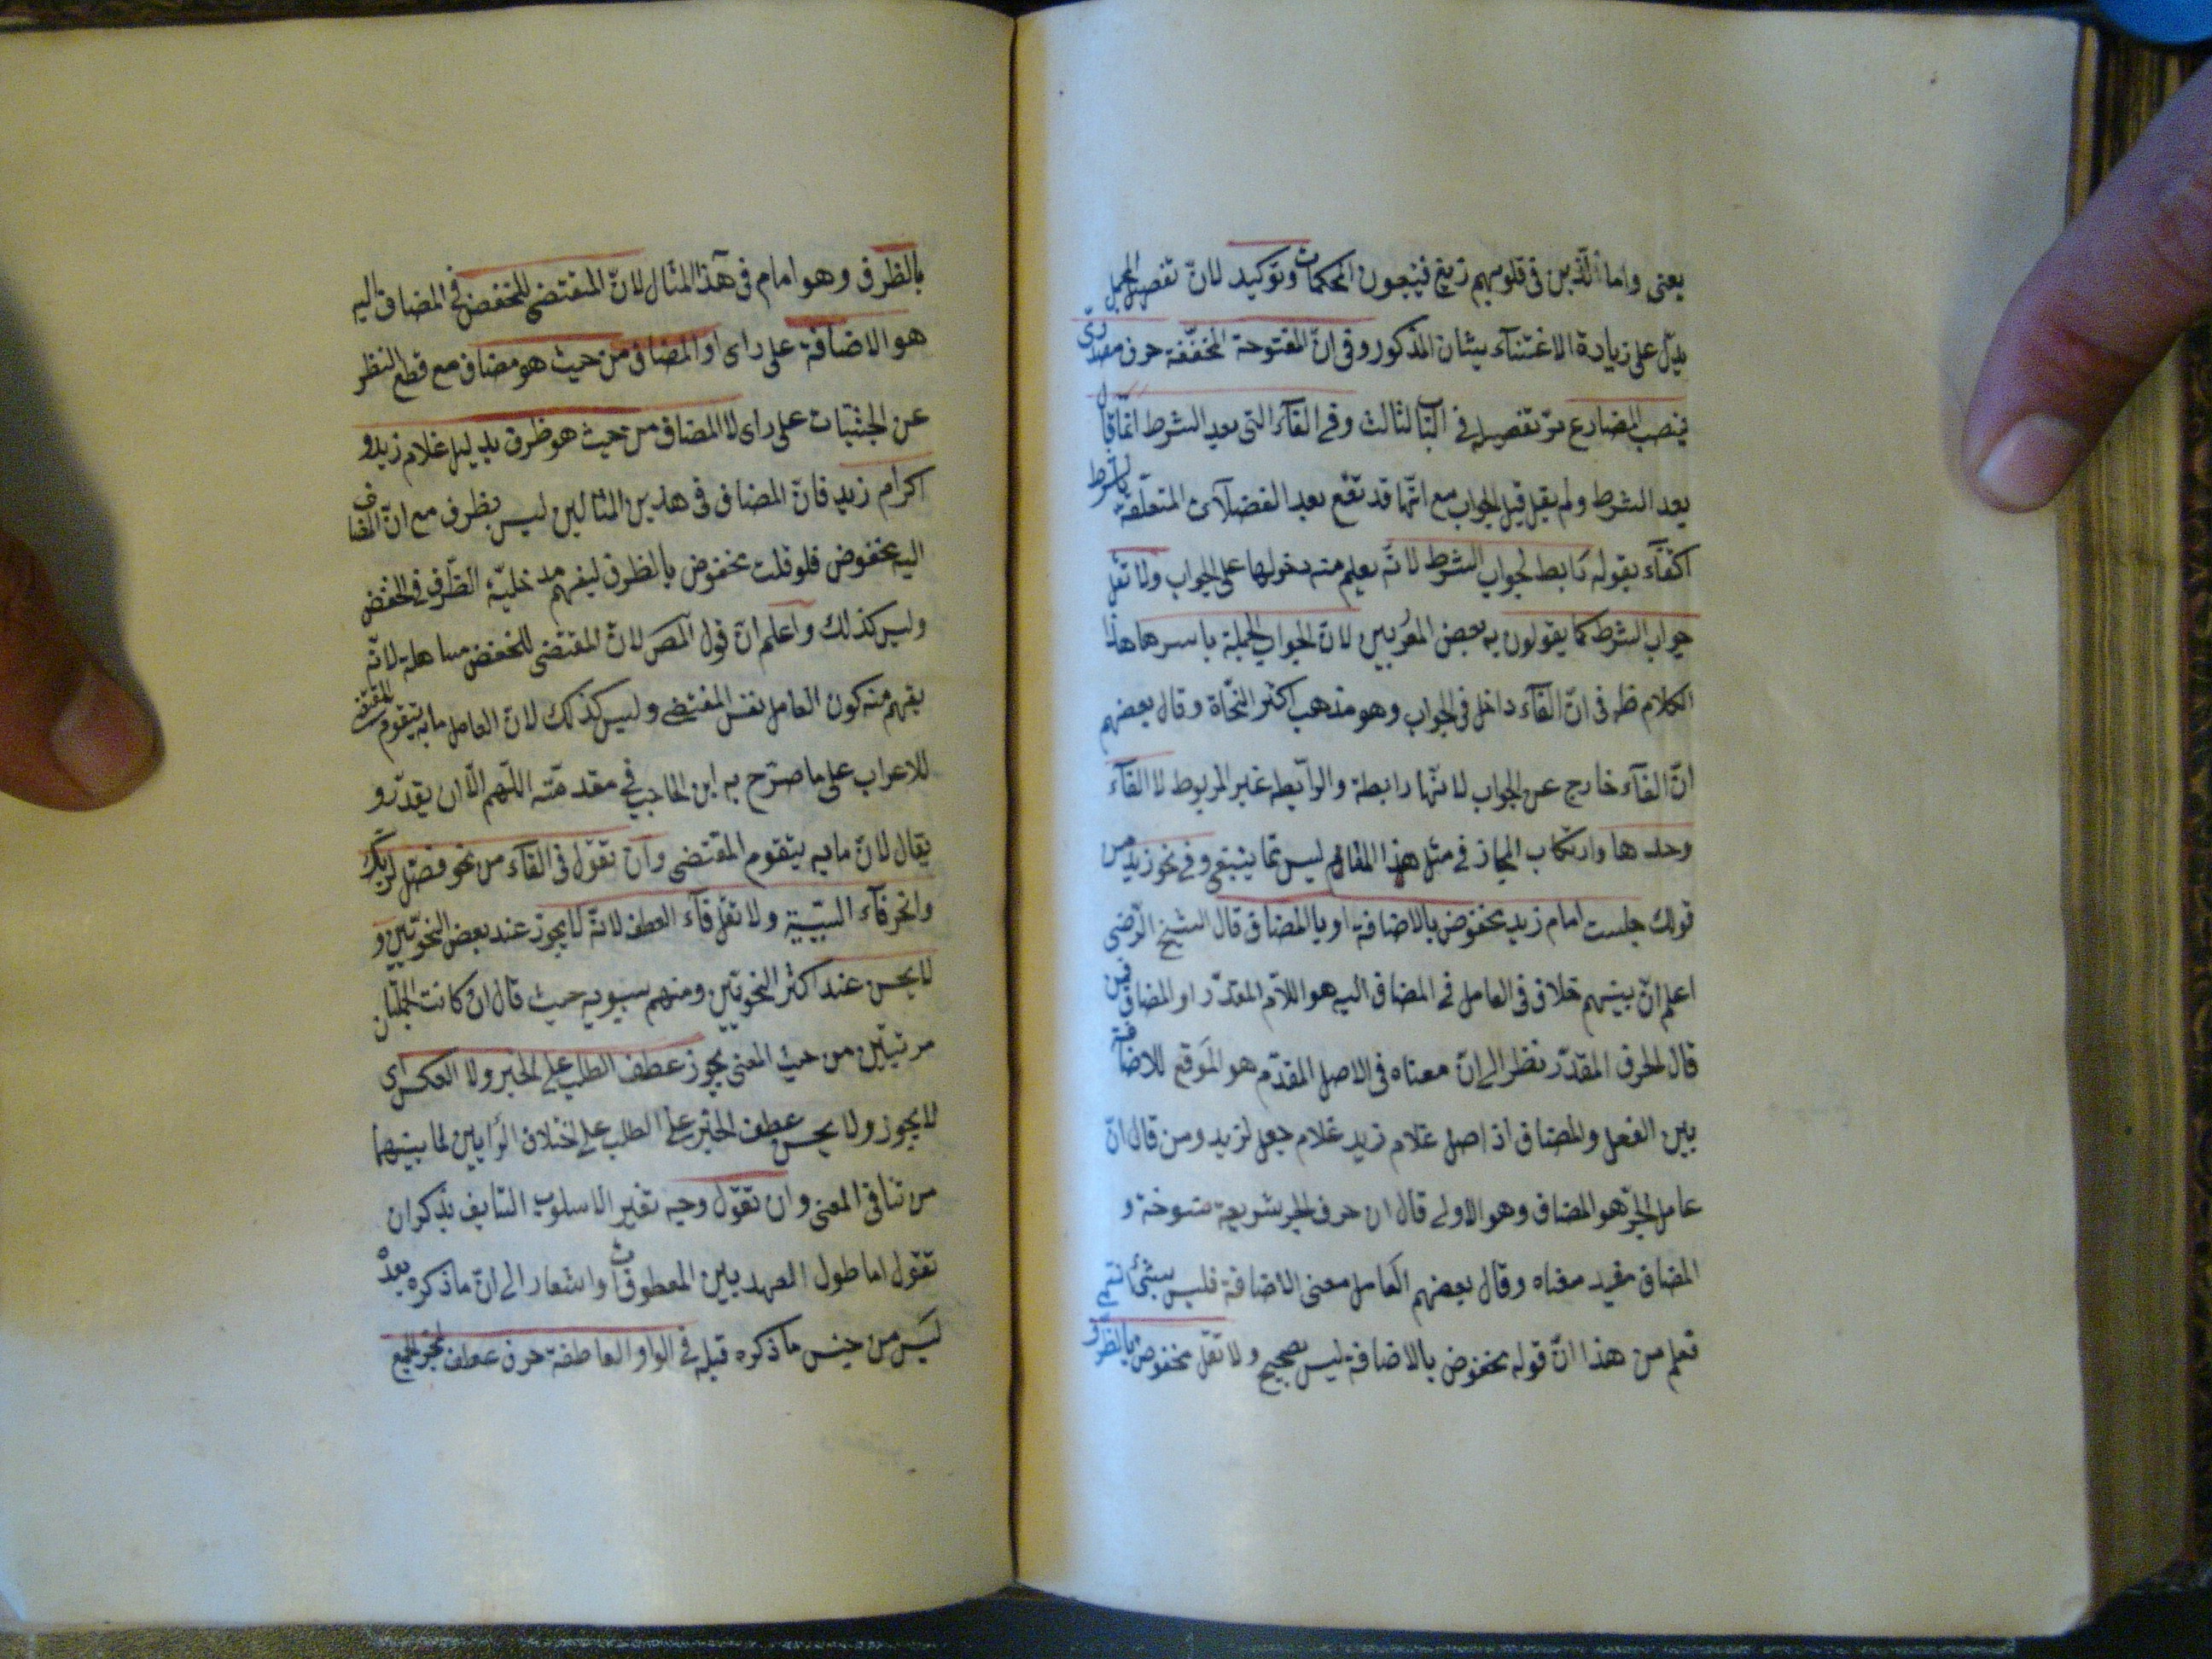 يعنى واما الذين فى قلوبهم زيغ فيتبعون المحكمات وتوكيد لان تفصيل المجمل
يدل على زيادة الاغتناء بشان المذكور وفى انّ المفتوحة المخففة حرف مصدرى
ينصب المضارع مرّ تفصيله فى الباب الثالث وفى الفاء التى بعد الشرط اتماقال
بعد الشرط ولم يقل قبل الجواب مع انّها قد تقع بعد الفضلآت المتعلّقة بالشرط
اكتفآء بقوله رابط لجواب الشرط لانّه يعلم منه دخولها على الجواب ولا تقل
جواب الشرط كما يقولون به بعض المعربين لانّ الجواب الجملة باسرها هذا
الكلام ظه فى انّ الفآء داخل فى الجواب وهو مذهب اكثر النحّاة وقال بعضهم
انّ الفآء خارج عن الجواب لانّها رابطة والرابطة غير المربوط لا الفآء
وحدها وارتكاب المجاز فى مثل هذا المقام ليس ممّا ينبغى وفى نحو زيد من
قولك جلست امام زيد مخفوض بالاضافة او بالمضاف قال الشيخ الرّضى
اعلم انّ بينهم خلاف فى العامل فى المضاف اليه هو اللام المقدّر او المضاف فمن
قال الحرف المقدّر نظر الى انّ معناه فى الاصل المقدّم هو الموقع للاضافة
بين الفعل والمضاف اذ اصل غلام زيد غلام جعل لزيد ومن قال انّ
عامل الجرّ هو المضاف وهو الاولى قال ان حرف الجر شريعة منسوخة و
المضاف مفيد معناه وقال بعضهم العامل معنى الاضافة فليس بشئ انتهى
فعلم من هذا انّ قوله مخفوض بالاضافة ليس بصحيح ولا تقل مخفوض بالظرف
بالظرف وهو امام فى هذا المثال لانّ المقتضى للخفض فى المضاف اليه
هو الاضافة على راى او المضاف من حيث هو مضاف مع قطع النظر
عن الحيثيات على راى لا المضاف من حيث هو ظرف بدليل غلام زيد و
اكرام زيد فانّ المضاف فى هذين المثالين ليس بظرف مع انّ المضاف
اليه مخفوض فلو قلت مخفوض بالظرف ليفهم مدخليّة الظّرف فى الخفض
وليس كذلك واعلم انّ قول المص لانّ المقتضى للخفض مساهلة لانّه
يفهم منه كون العامل نفس المقتضى وليس كذلك لانّ العامل ما به يتقوم المقتضى
للاعراب على ما صرّح به ابن الحاجب فى مقدمته اللّهم الّا ان يقدّر و
يقال لانّ ما به يتقوم المقتضى وان تقول فى الفآء من نحو فصلّ لربك
وانحر فآء السّببيّة ولا تقل فآء العطف لانّه لا يجوز عند بعض النحويّين و
لا يحسن عند اكثر النحويّين ومنهم سيبويه حيث قال ان كانت الجملتان
مرتبتين من حيث المعنى يجوز عطف الطلب على الخبر ولا العكس اى
لا يجوز ولا يحسن عطف الخبر على الطلب على اختلاف الرّايين لما بينهما
من تنافى المعنى وان تقول وجه تغير الاسلوب السّابق بذكر ان
تقول اما طول العهد بين المعطوفات واشعار الى انّ ما ذكره بعده
ليس من جنس ما ذكره قبله فى الواو العاطفة حرف عطف لمجرّد الجمع